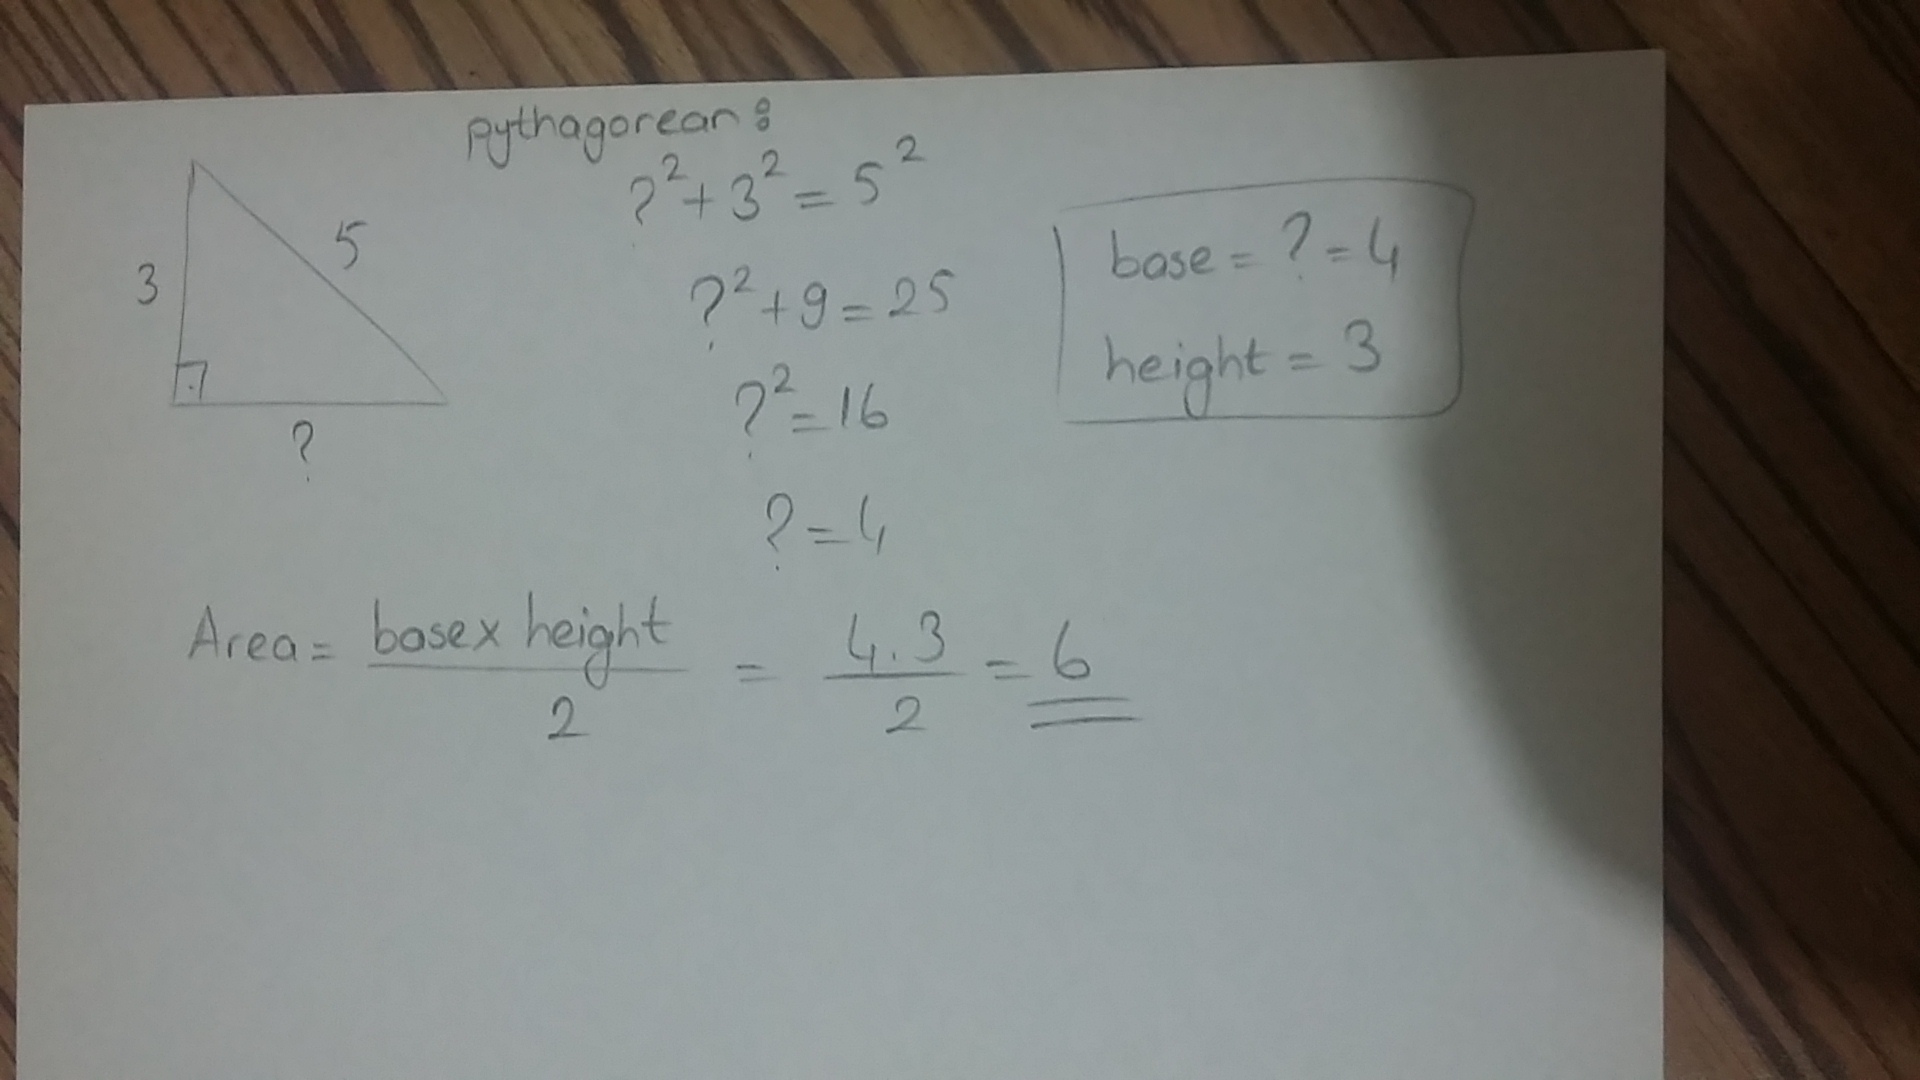 pythagorean:
?² + 3² = 5²
3
5
?
?² + 9 = 25
?² = 16
? = 4
base = ? = 4
height = 3
Area = base x height / 2 = 4.3 / 2 = 6